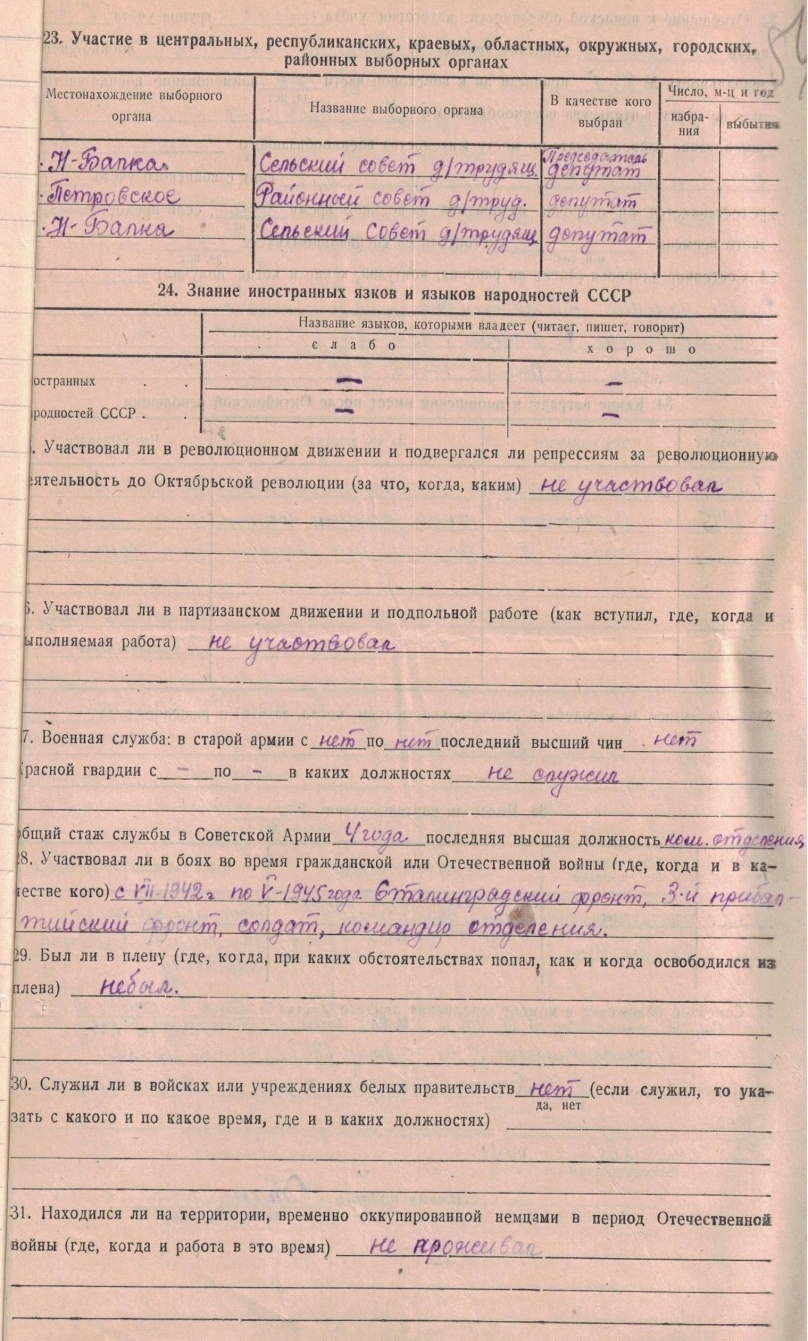 23. Участие в центральных, республиканских, краевых, областных, окружных, городских,
районных выборных органах
Местонахождение выборного органа | Название выборного органа | В качестве кого выбран | Число, м-ц и год
избрания | выбытия
Н-Бапка | Сельский совет д/трудящ. | Председатель депутат
Петровское | Районный совет д/труд. | депутат
Н-Бапка | Сельский Совет д/трудящ | депутат
24. Знание иностранных язков и языков народностей СССР
Название языков, которыми владеет (читает, пишет, говорит)
слабо | хорошо
остранных . . — —
родностей СССР . . — —
. Участвовал ли в революционном движении и подвергался ли репрессиям за революционную
еятельность до Октябрьской революции (за что, когда, каким) не участвовал
6. Участвовал ли в партизанском движении и подпольной работе (как вступил, где, когда и
ыполняемая работа) не участвовал
7. Военная служба: в старой армии с нет по нет последний высший чин нет
расной гвардии с - по - в каких должностях не служил
общий стаж службы в Советской Армии 4 года последняя высшая должность ком. отделения
28. Участвовал ли в боях во время гражданской или Отечественной войны (где, когда и в ка-
честве кого) с VII-1942г по V-1945 года Сталинградский фронт, 3-й прибал-
тийский фронт, солдат, командир отделения.
29. Был ли в плену (где, когда, при каких обстоятельствах попал, как и когда освободился из
плена) небыл.
30. Служил ли в войсках или учреждениях белых правительств нет (если служил, то ука-
да, нет
зать с какого и по какое время, где и в каких должностях)
31. Находился ли на территории, временно оккупированной немцами в период Отечественной
войны (где, когда и работа в это время) не проживал